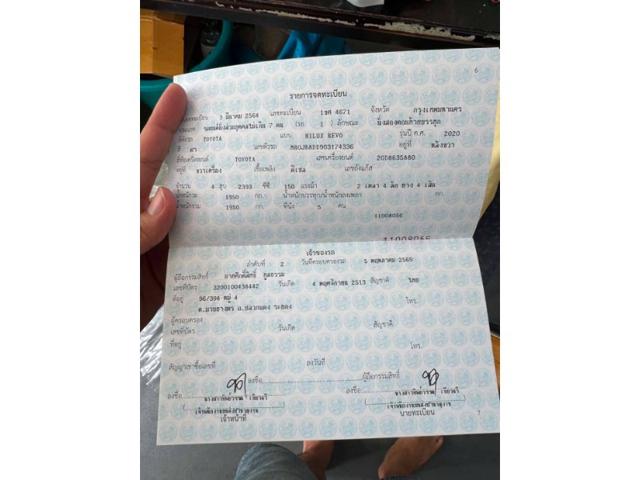 6
รายการจดทะเบียน
วันจดทะเบียน 3 มีนาคม 2564 เลขทะเบียน 1ขศ 4671 จังหวัด กรุงเทพมหานคร
ประเภท รถยนต์นั่งส่วนบุคคลไม่เกิน 7 คน (รย. 1 ) ลักษณะ นั่งสองตอนท้ายบรรทุก
TOYOTA แบบ HILUX REVO รุ่นปี ค.ศ. 2020
สี ดำ เลขตัวรถ อยู่ที่
ยี่ห้อเครื่องยนต์ TOYOTA เลขเครื่องยนต์ 2GD8635880
อยู่ที่ ขวาเครื่อง เชื้อเพลิง ดีเซล เลขถังแก๊ส
จำนวน 4 สูบ 2393 ซีซี 150 แรงม้า 2 เพลา 4 ล้อ ยาง 4 เส้น
น้ำหนักรถ 1950 กก. น้ำหนักบรรทุก/น้ำหนักลงเพลา กก.
น้ำหนักรวม 1950 กก. ที่นั่ง 5 คน
11908056
11908056
เจ้าของรถ
ลำดับที่ 2 วันที่ครอบครองรถ 5 พฤษภาคม 2565
ผู้ถือกรรมสิทธิ์
เลขที่บัตร 3200100438442 วันเกิด 4 พฤศจิกายน 2513 สัญชาติ ไทย
ที่อยู่ 96/394 หมู่ 4
ต.มาบยางพร อ.ปลวกแดง ระยอง โทร.
ผู้ครอบครอง
เลขที่บัตร วันเกิด สัญชาติ
ที่อยู่ โทร.
สัญญาเช่าซื้อเลขที่ ลงวันที่
ลงชื่อ ผู้ถือกรรมสิทธิ์
ลงชื่อ ลงชื่อ
เจ้าหน้าที่ นายทะเบียน
7